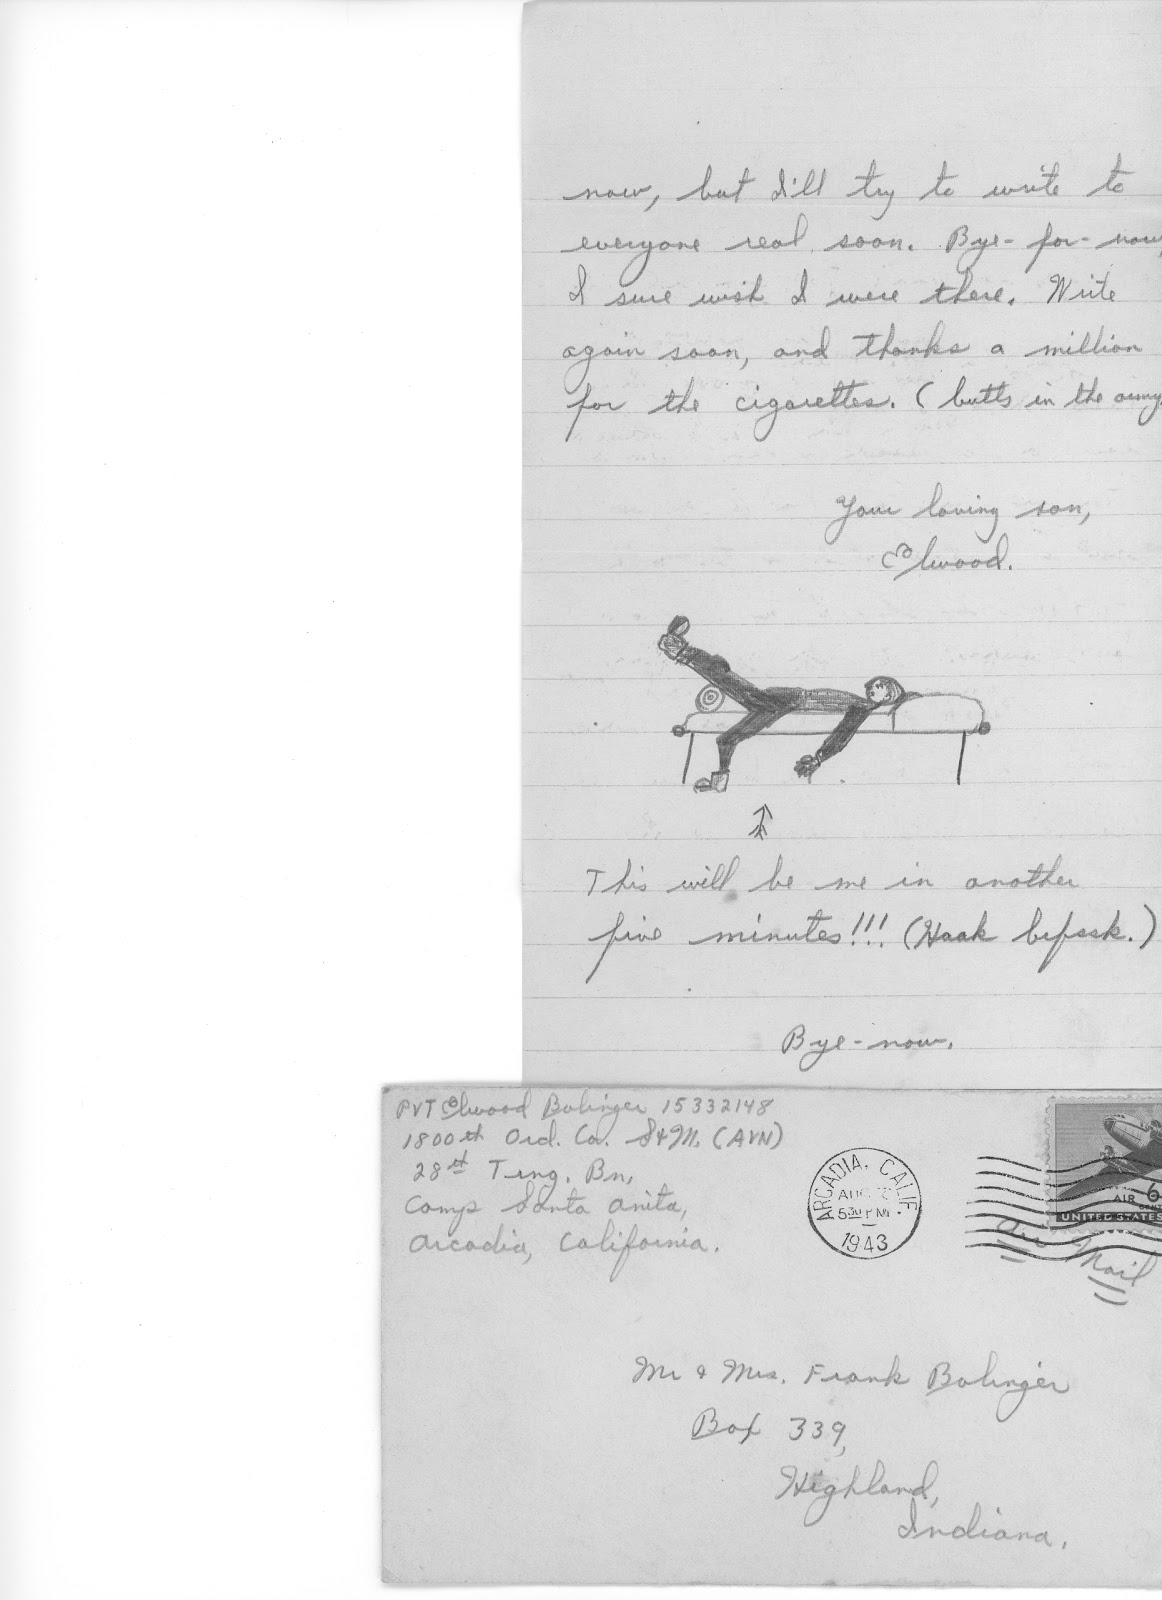 now, but I'll try to write to
everyone real soon. Bye-for-now,
I sure wish I were there. Write
again soon, and thanks a million
for the cigarettes. (butts in the army
Your loving son,
Elwood.
This will be me in another
five minutes!!! (Haak
Bye-now.
PVT Elwood Bolinger 15332148
1800th Ord. Co. S&M. (AVN)
28th Trng. Bn,
Camp Santa Anita,
Arcadia, California.
ARCADIA, CALIF.
AUG
530 PM
1943
AIR 6
UNITED STATES
Air Mail
Mr & Mrs. Frank Bolinger
Box 339,
Highland,
Indiana.